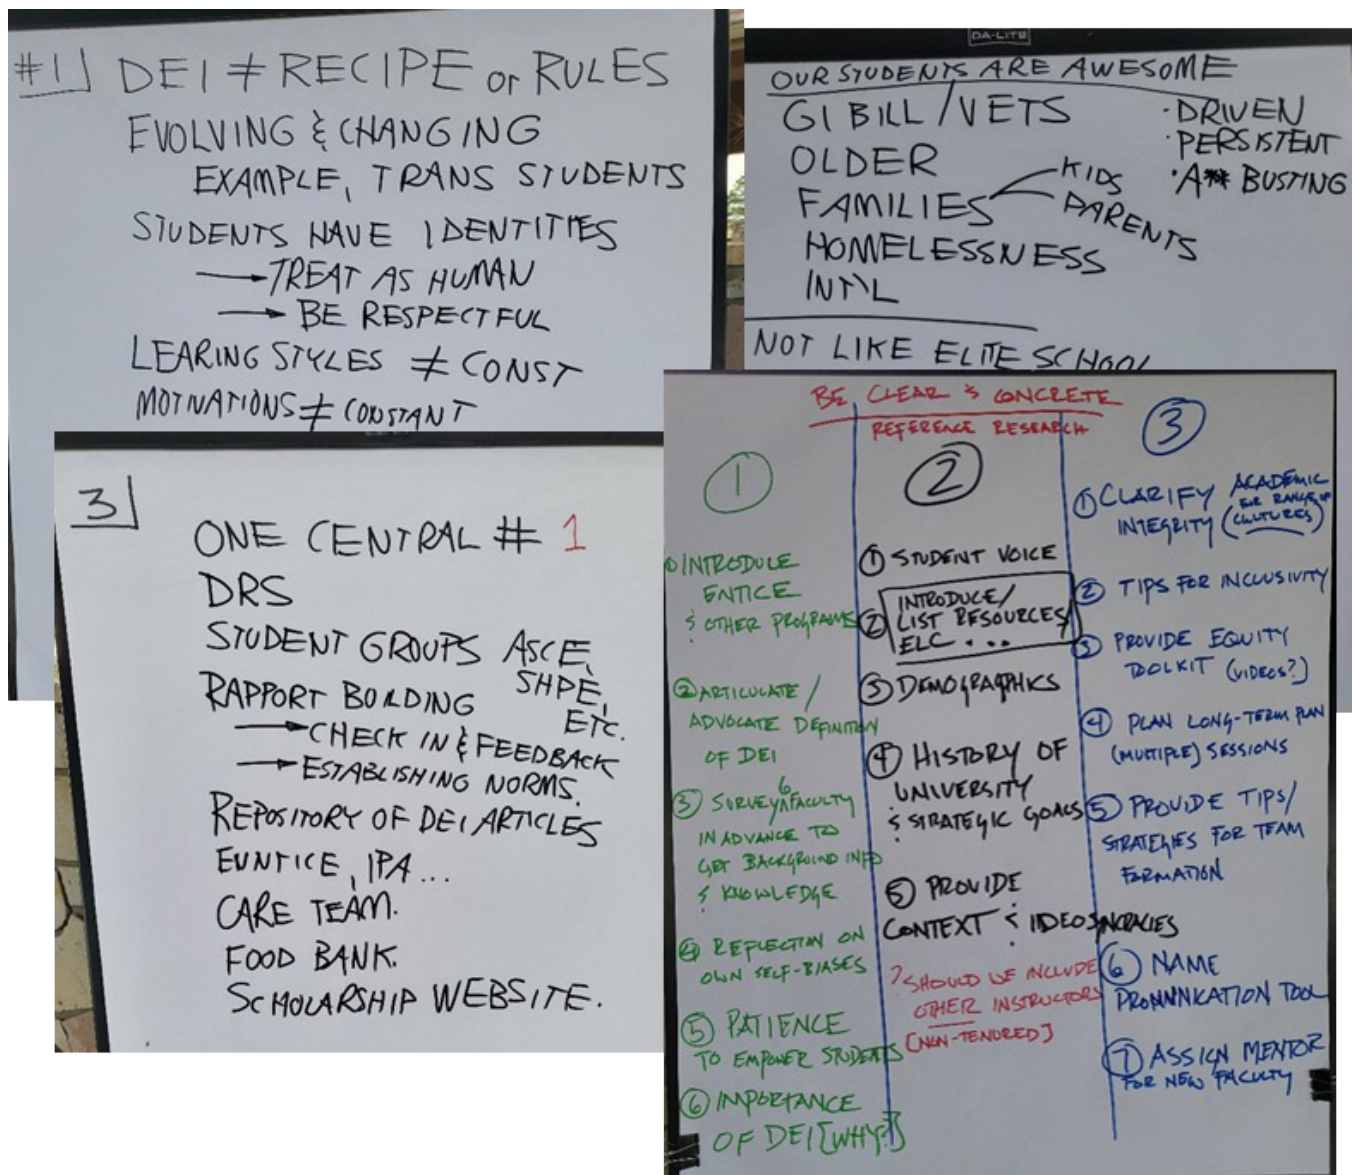 #1 DEI ≠ RECIPE or RULES
EVOLVING & CHANGING
EXAMPLE, TRANS STUDENTS
STUDENTS HAVE IDENTITIES
→ TREAT AS HUMAN
→ BE RESPECTFUL
LEARING STYLES ≠ CONST
MOTIVATIONS ≠ CONSTANT
DA-LITE
OUR STUDENTS ARE AWESOME
GI BILL / VETS
OLDER
FAMILIES
KIDS
PARENTS
HOMELESSNESS
INT'L
· DRIVEN
· PERSISTENT
· A** BUSTING
NOT LIKE ELITE SCHOOL
3
ONE CENTRAL # 1
DRS
STUDENT GROUPS ASCE,
SHPE,
ETC.
RAPPORT BUILDING
→ CHECK IN & FEEDBACK
→ ESTABLISHING NORMS.
REPOSITORY OF DEI ARTICLES
EUNTICE, IPA ...
CARE TEAM.
FOOD BANK.
SCHOLARSHIP WEBSITE.
BE CLEAR & CONCRETE
REFERENCE RESEARCH
1
① INTRODUCE
ENTICE
& OTHER PROGRAMS
② ARTICULATE /
ADVOCATE DEFINITION
OF DEI
③ SURVEY FACULTY
IN ADVANCE TO
GET BACKGROUND INFO
& KNOWLEDGE
④ REFLECTION ON
OWN SELF-BIASES
⑤ PATIENCE
TO EMPOWER STUDENTS
⑥ IMPORTANCE
OF DEI [WHY?]
2
① STUDENT VOICE
② INTRODUCE /
LIST RESOURCES /
ELC ...
③ DEMOGRAPHICS
④ HISTORY OF
UNIVERSITY
& STRATEGIC GOALS
⑤ PROVIDE
CONTEXT & IDEOSYNCRACIES
? SHOULD WE INCLUDE
OTHER INSTRUCTORS
[NON-TENURED]
3
① CLARIFY ACADEMIC
INTEGRITY (FOR RANGE OF
CULTURES)
② TIPS FOR INCLUSIVITY
③ PROVIDE EQUITY
TOOLKIT (VIDEOS?)
④ PLAN LONG-TERM PLAN
(MULTIPLE) SESSIONS
⑤ PROVIDE TIPS/
STRATEGIES FOR TEAM
FORMATION
⑥ NAME
PRONNNICATION TOOL
⑦ ASSIGN MENTOR
FOR NEW FACULTY